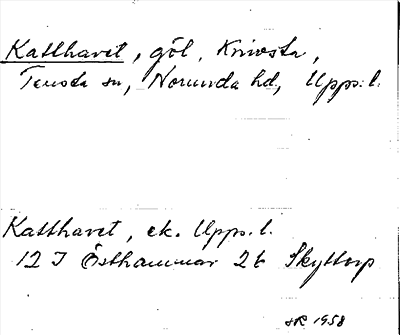 Katthavet, göl, Knivsta,
Tensta sn, Norunda hd, Upps. l.
Katthavet, ek. Upps. l.
12 I Östhammar 2b Skyttorp
HR 1958